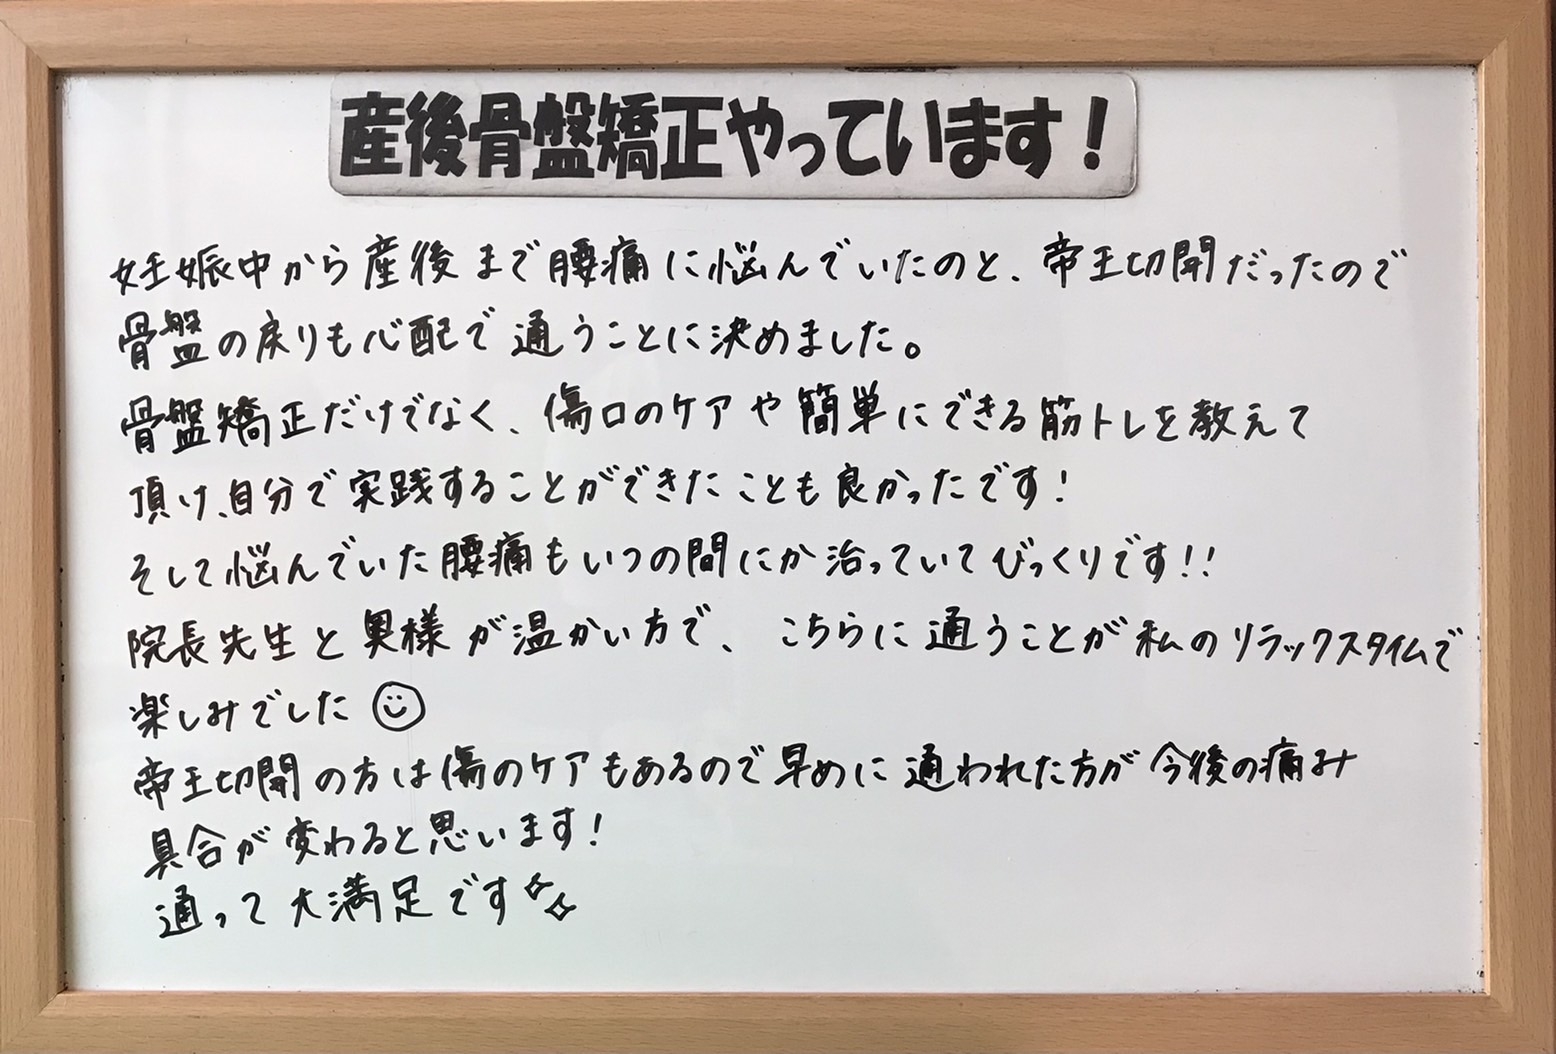 産後骨盤矯正やっています！
妊娠中から産後まで腰痛に悩んでいたのと、帝王切開だったので
骨盤の戻りも心配で通うことに決めました。
骨盤矯正だけでなく、傷口のケアや簡単にできる筋トレを教えて
頂け、自分で実践することができたことも良かったです！
そして悩んでいた腰痛もいつの間にか治っていてびっくりです!!
院長先生と奥様が温かい方で、こちらに通うことが私のリラックスタイムで
楽しみでした
帝王切開の方は傷のケアもあるので早めに通われた方が今後の痛み
具合が変わると思います！
通って大満足です